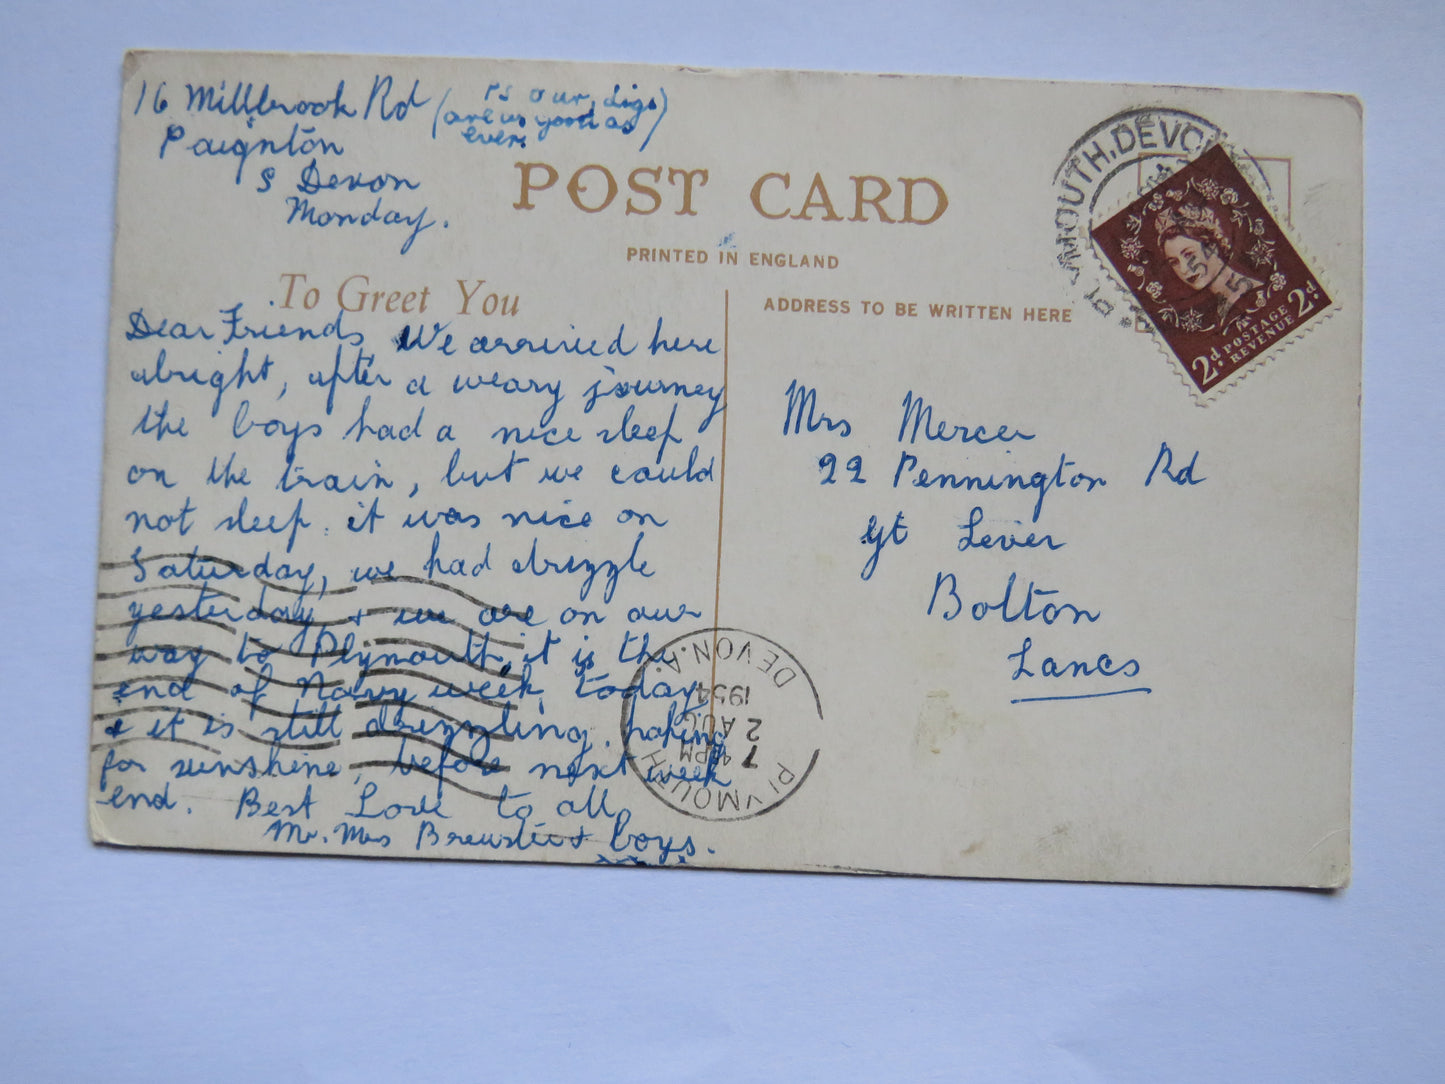 16 Millbrook Rd
Paignton
S Devon
Monday.
(PS Our digs
are as good as
ever)
POST CARD
PRINTED IN ENGLAND
To Greet You
ADDRESS TO BE WRITTEN HERE
Dear Friends, We arrived here
alright, after a weary journey
the boys had a nice sleep
on the train, but we could
not sleep. it was nice on
Saturday, we had drizzle
yesterday, & we are on our
way to Plymouth, it is the
end of Navy week, today,
& it is still drizzling. hoping
for sunshine, before next week
end. Best Love to all
Mr. Mrs Brewster & boys.
Mrs Mercer
22 Pennington Rd
Gt Lever
Bolton
Lancs
PLYMOUTH, DEVON
2d POSTAGE REVENUE 2d
PLYMOUTH
DEVON. A.
7 PM
2 AUG
1954